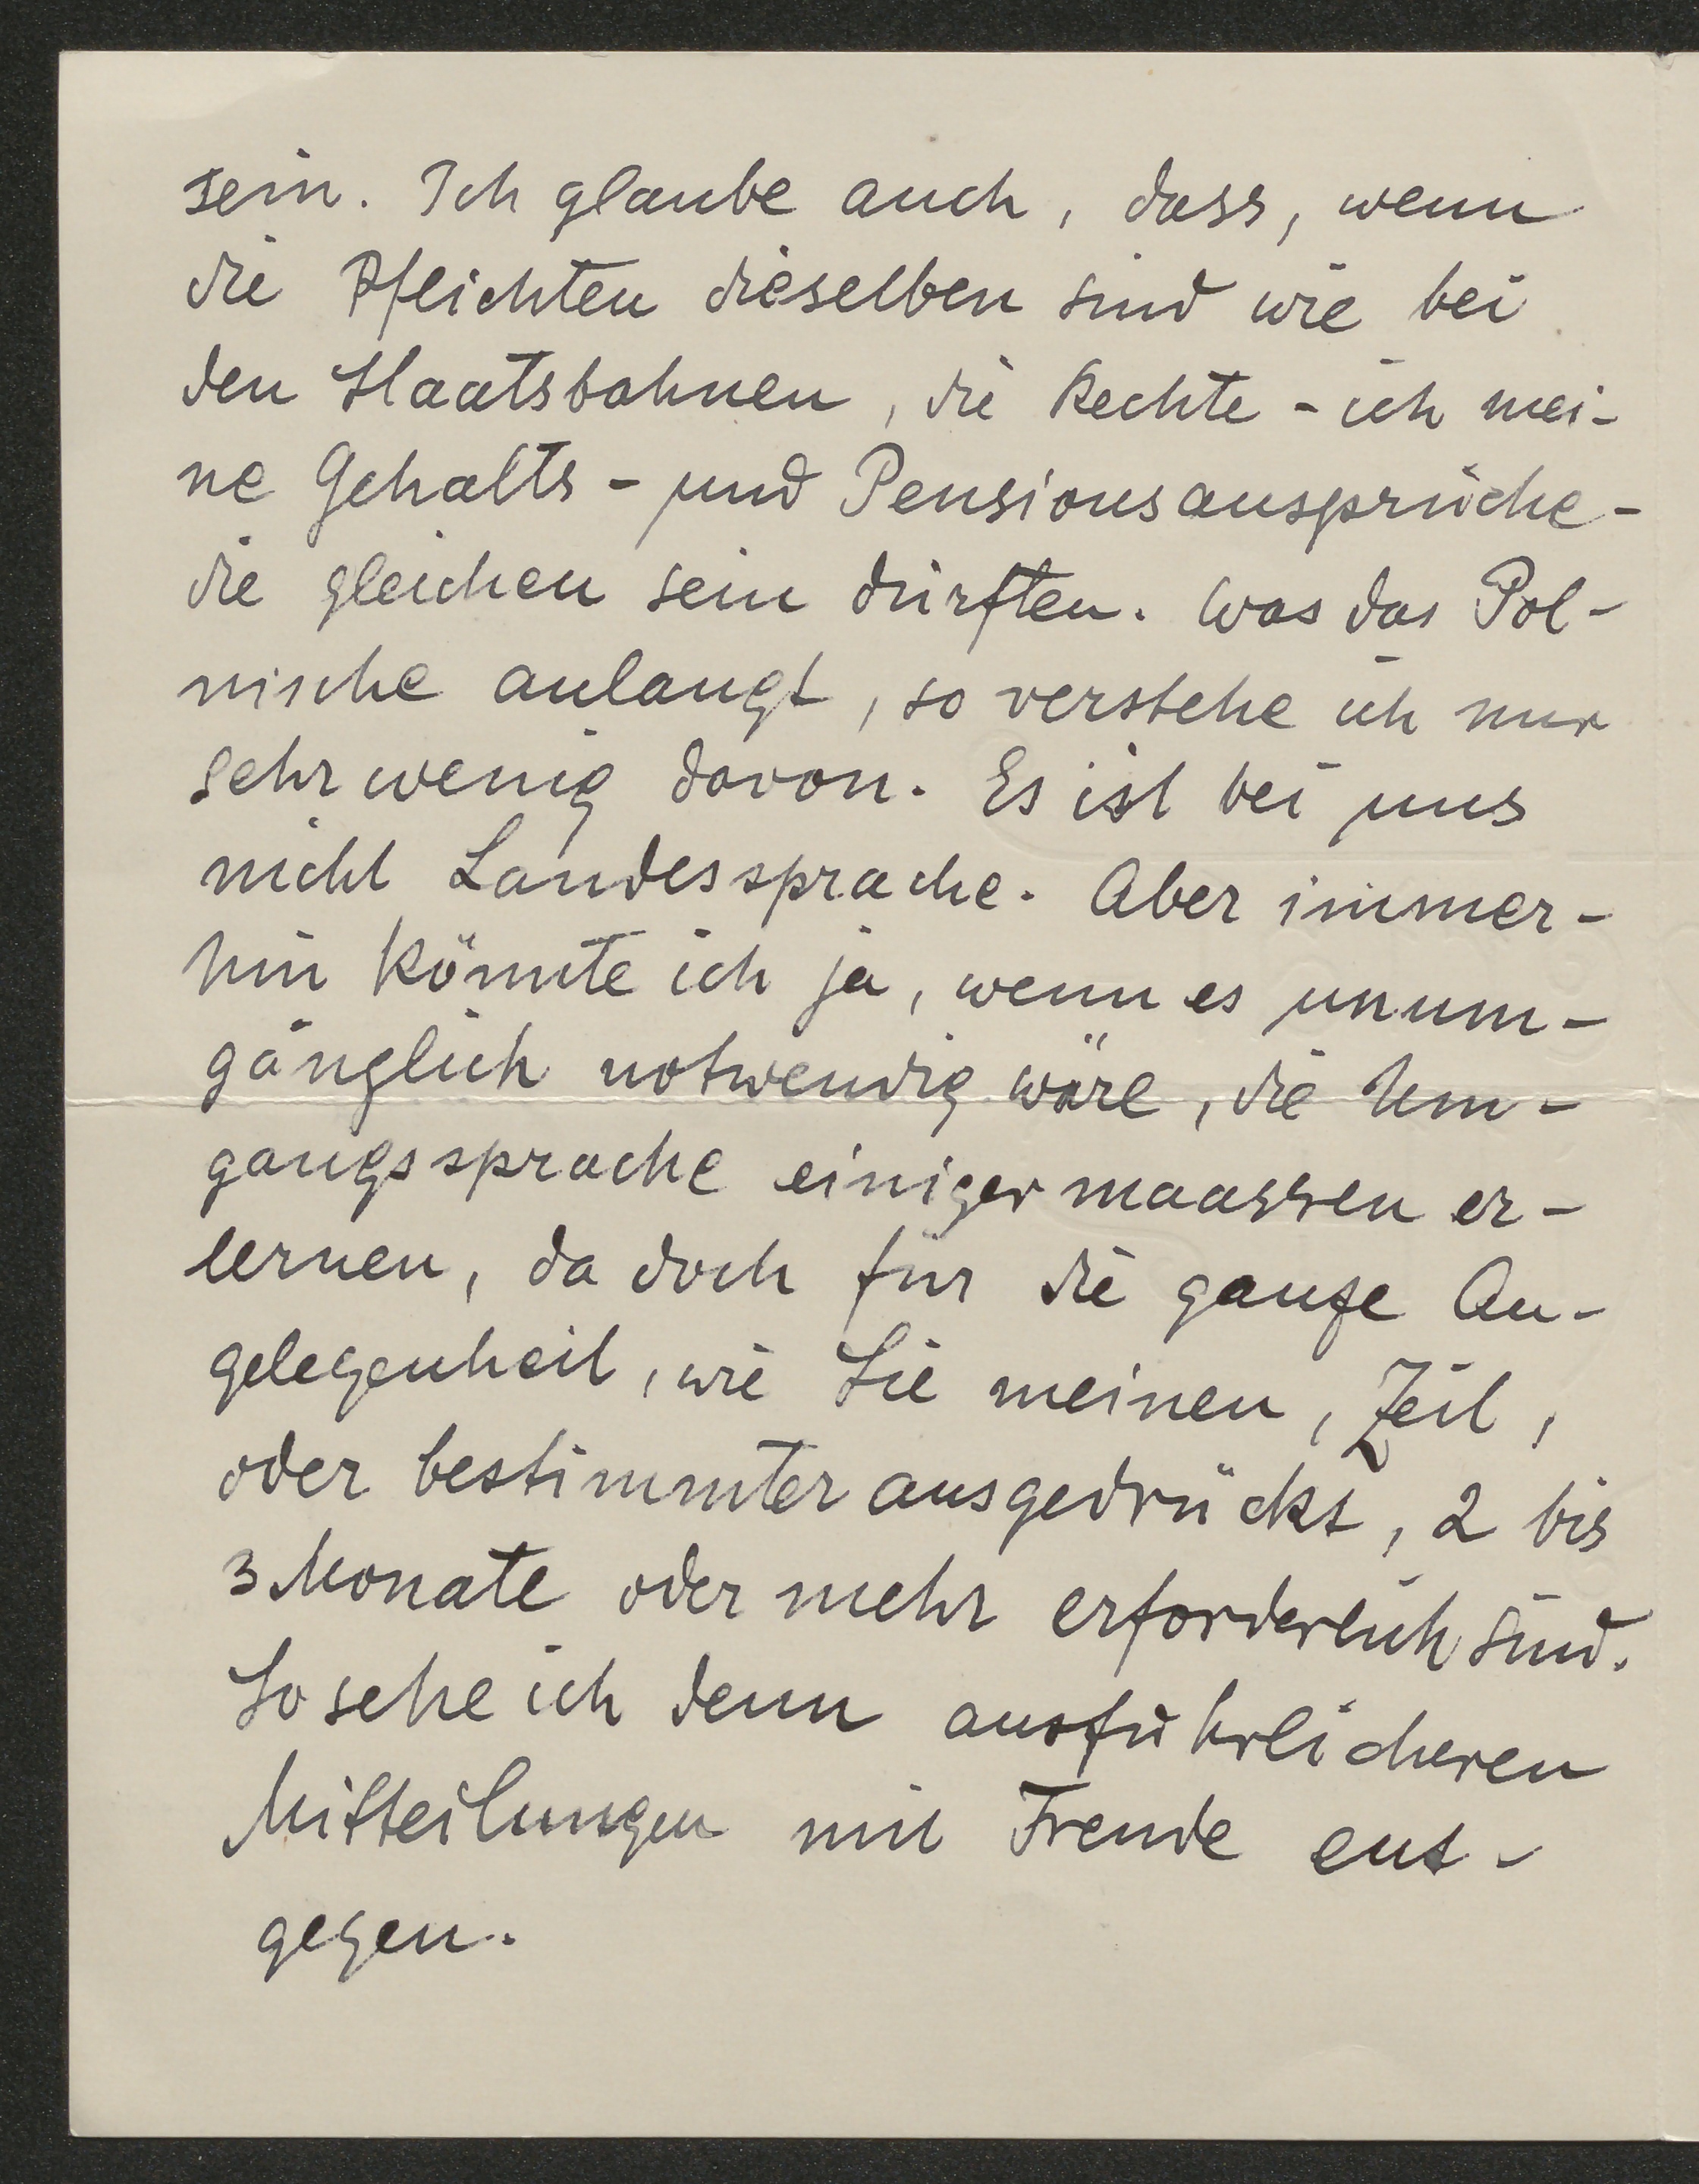 sein. Ich glaube auch, dass, wenn
die Pflichten dieselben sind wie bei
den Staatsbahnen, die Rechte - ich mei-
ne Gehalts - und Pensionsansprüche -
die gleichen sein dürften. Was das Pol-
nische anlangt, so verstehe ich nur
sehr wenig davon. Es ist bei uns
nicht Landessprache. Aber immer-
hin könnte ich ja, wenn es unum-
gänglich notwendig wäre, die Um-
gangssprache einigermaassen er-
lernen, da doch für die ganze An-
gelegenheit, wie Sie meinen, Zeit,
oder bestimmter ausgedrückt, 2 bis
3 Monate oder mehr erforderlich sind.
So sehe ich denn ausführlicheren
Mitteilungen mit Freude ent-
gegen.